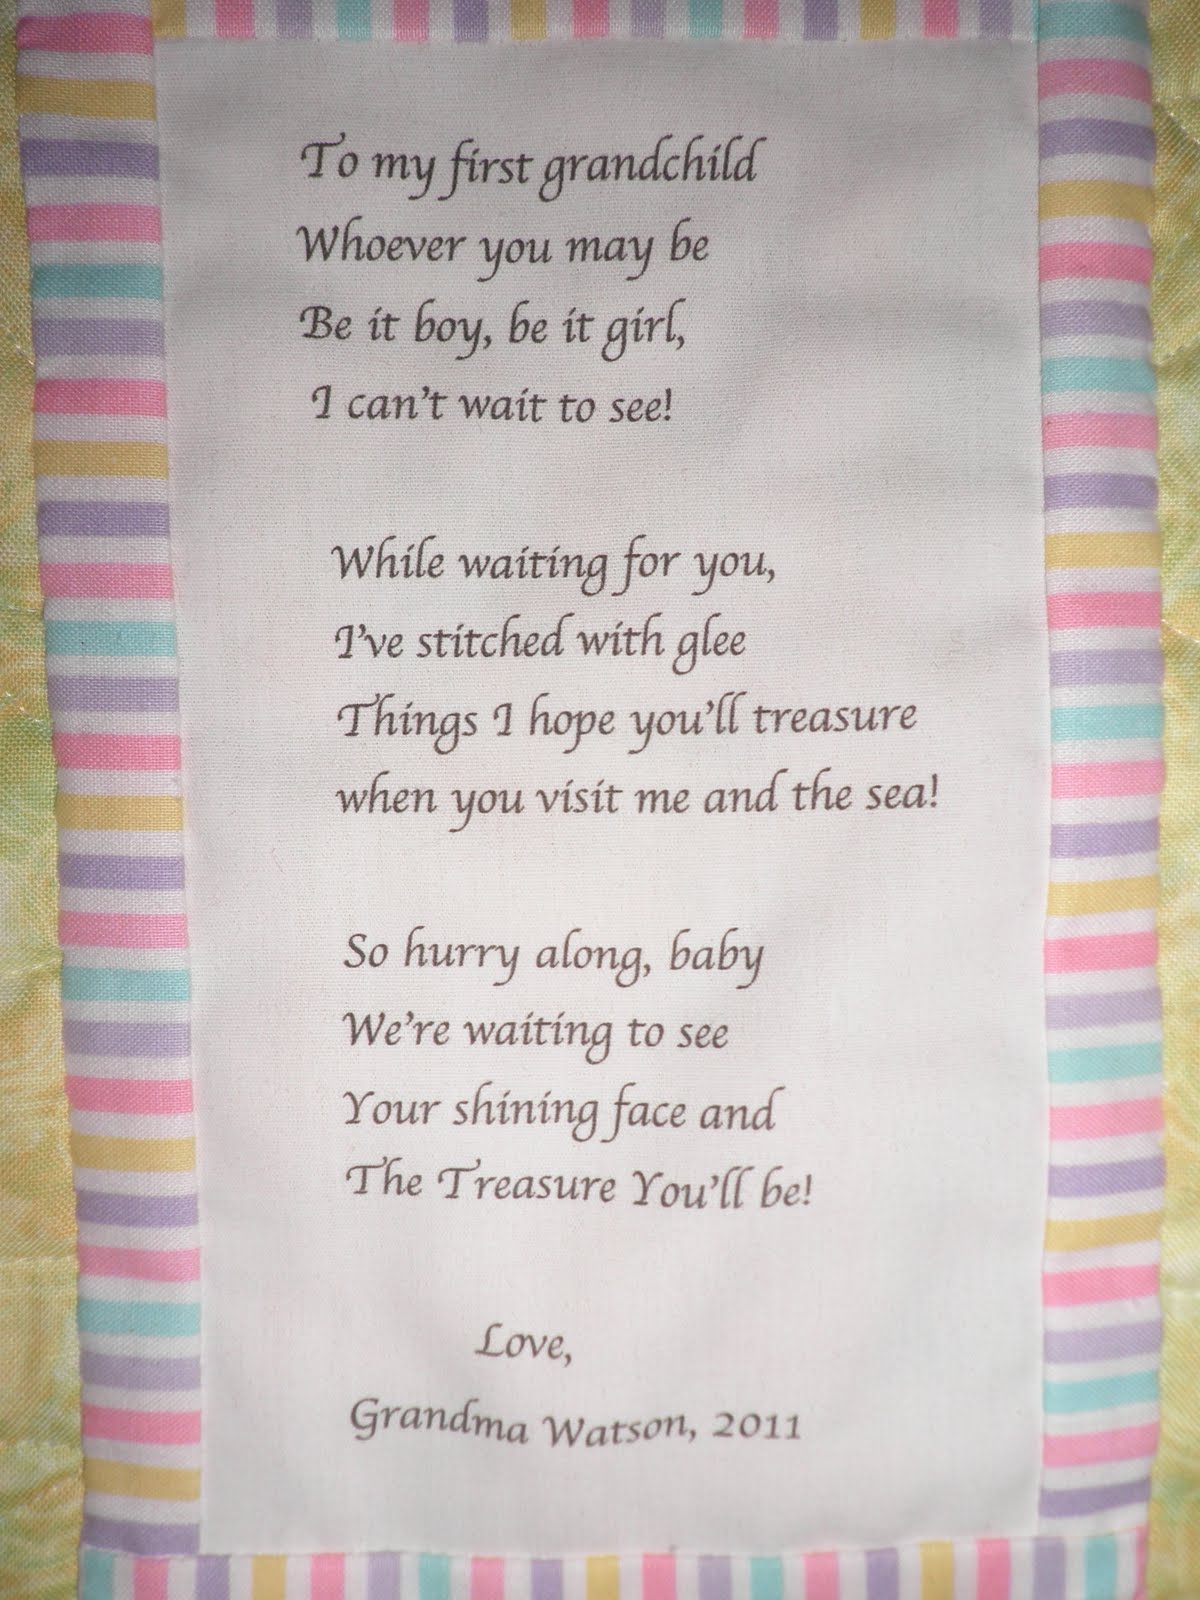 To my first grandchild
Whoever you may be
Be it boy, be it girl,
I can't wait to see!
While waiting for you,
I've stitched with glee
Things I hope you'll treasure
when you visit me and the sea!
So hurry along, baby
We're waiting to see
Your shining face and
The Treasure You'll be!
Love,
Grandma Watson, 2011